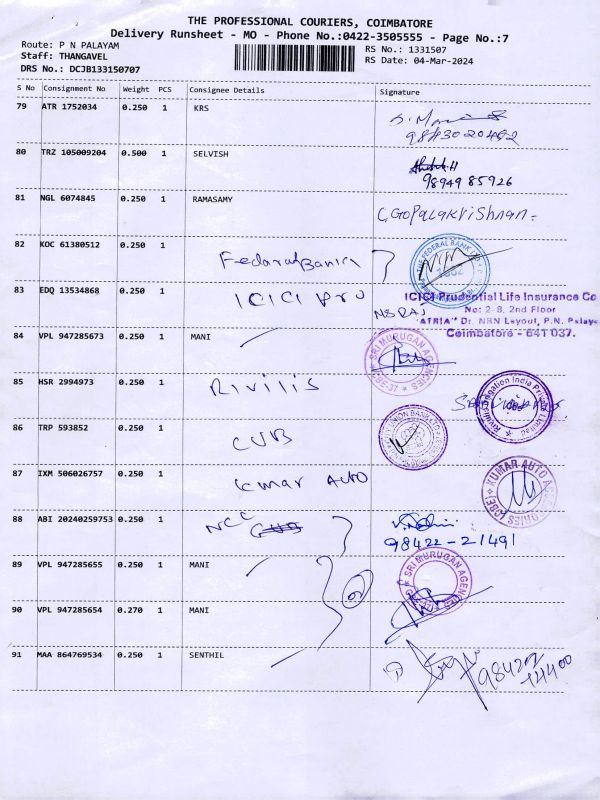 THE PROFESSIONAL COURIERS, COIMBATORE
Delivery Runsheet - MO - Phone No.:0422-3505555 - Page No.:7
Route: P N PALAYAM
Staff: THANGAVEL
DRS No.: DCJB133150707
RS No.: 1331507
RS Date: 04-Mar-2024
S No Consignment No Weight PCS Consignee Details Signature
79 ATR 1752034 0.250 1 KRS
80 TRZ 105009204 0.500 1 SELVISH
98949 85926
81 NGL 6074845 0.250 1 RAMASAMY C.Gopalakrishnan.
82 KOC 61380512 0.250 1 Fedaral Bank THE FEDERAL BANK LTD
83 EDQ 13534868 0.250 1 ICICI Pru
ICICI Prudential Life Insurance Co
No: 2-8, 2nd Floor
"ATRIA" Dr. NRN Layout, P.N. Palay
Coimbatore - 641 037.
84 VPL 947285673 0.250 1 MANI SRI MURUGAN AGENCIES
85 HSR 2994973 0.250 1 Rivilis
86 TRP 593852 0.250 1 CUB UNION BANK LTD
87 IXM 506026757 0.250 1 Kmar Auto KUMAR AUTO AGENCIES (CBE)
88 ABI 20240259753 0.250 1 NCC
98422-21491
89 VPL 947285655 0.250 1 MANI SRI MURUGAN AGENCIES
90 VPL 947285654 0.270 1 MANI
91 MAA 864769534 0.250 1 SENTHIL